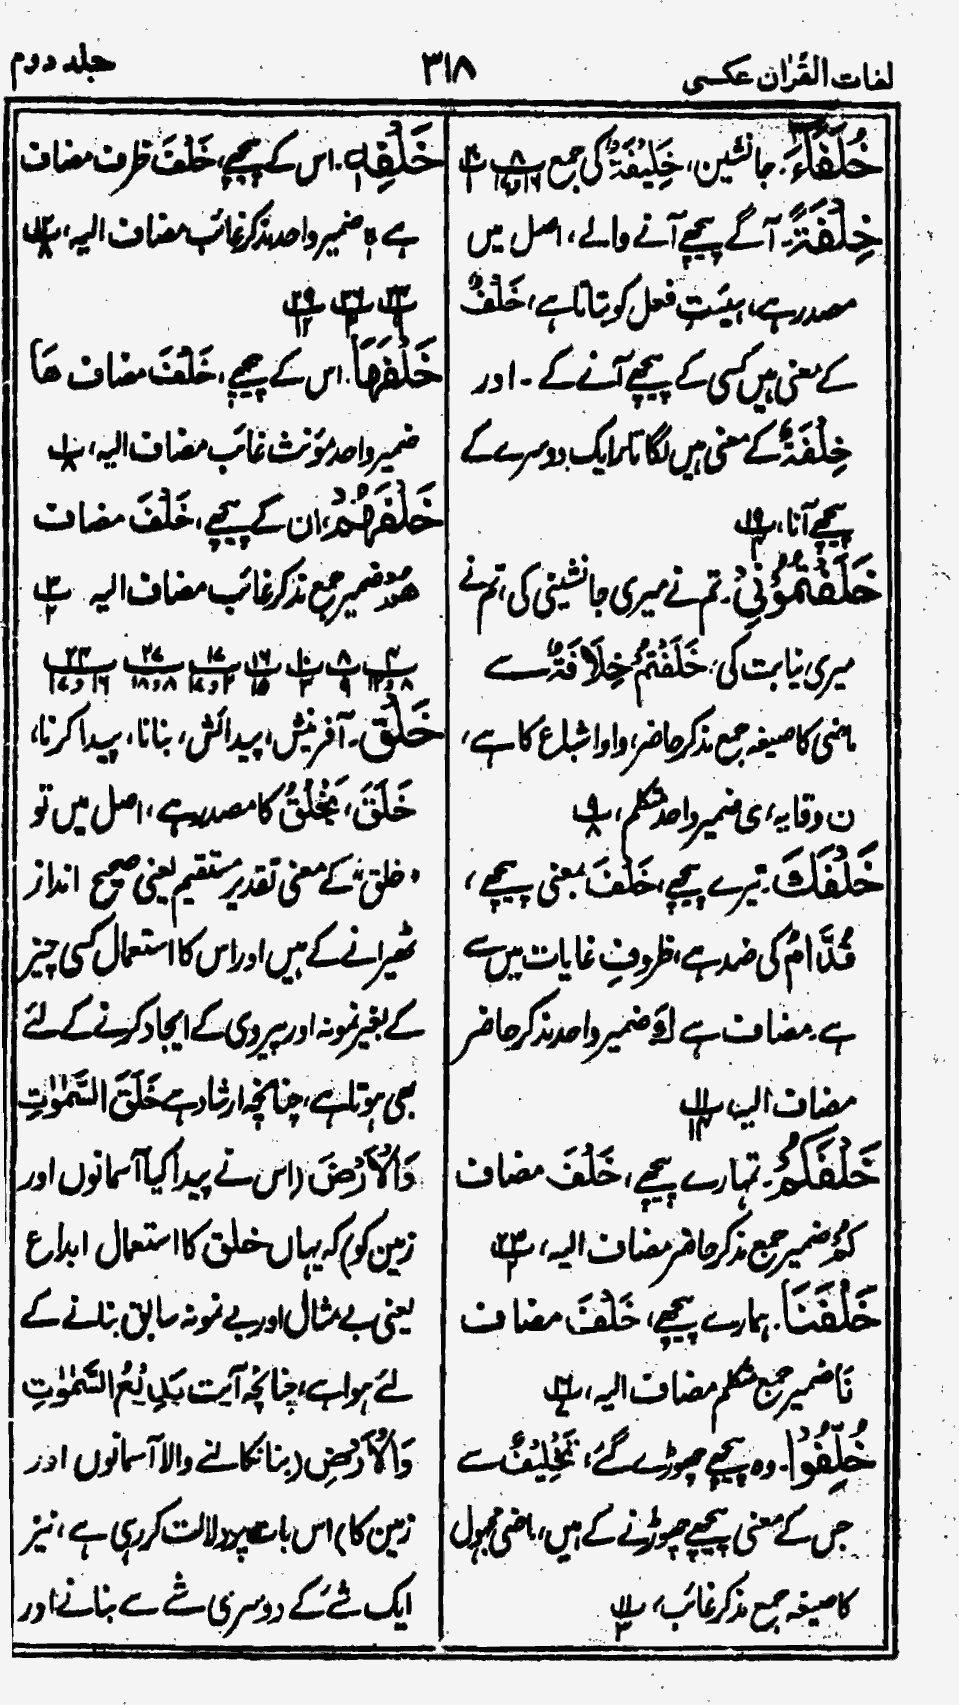 لغات القرآن عکسی
۳۱۸
جلد دوم
خُلَفَآءَ۔ جانشین، خَلِیْفَۃٌ کی جمع
خِلْفَۃً۔ آگے پیچھے آنے والے، اصل میں
مصدر ہے، ہیئتِ فعل کو بتاتا ہے، خَلْفٌ
کے معنی ہیں کسی کے پیچھے آنے کے۔ اور
خِلْفَۃٌ کے معنی ہیں لگاتار ایک دوسرے کے
پیچھے آنا، ۱۹
خَلَفْتُمُوْنِیْ۔ تم نے میری جانشینی کی، تم نے
میری نیابت کی، خَلَفْتُمْ خِلَافَۃٌ سے
ماضی کا صیغہ جمع مذکر حاضر، واو اشباع کا ہے،
ن وقایہ، ی ضمیر واحد متکلم، ۹ ۸
خَلْفَكَ۔ تیرے پیچھے، خَلْفَ بمعنی پیچھے،
قُدَّامُ کی ضد ہے، ظروفِ غایات میں سے
ہے۔ مضاف ہے كَ ضمیر واحد مذکر حاضر
مضاف الیہ، ۱۱ ۱۴
خَلْفَكُمْ۔ تمہارے پیچھے، خَلْفَ مضاف
كُمْ ضمیر جمع مذکر حاضر مضاف الیہ، ۲۳ ۲
خَلْفَنَا۔ ہمارے پیچھے، خَلْفَ مضاف
نَا ضمیر جمع متکلم مضاف الیہ، ۱۶ ۷
خُلِّفُوْا۔ وہ پیچھے چھوڑے گئے، تَخْلِیْفٌ سے
جس کے معنی پیچھے چھوڑنے کے ہیں، ماضی مجہول
کا صیغہ جمع مذکر غائب، ۱۱ ۳
خَلْفِہٖ۔ اس کے پیچھے، خَلْفَ ظرف مضاف
ہے ہٖ ضمیر واحد مذکر غائب مضاف الیہ، ۱۳ ۸
خَلْفَهَا۔ اس کے پیچھے، خَلْفَ مضاف هَا
ضمیر واحد مؤنث غائب مضاف الیہ، ۱ ۸
خَلْفَهُمْ۔ ان کے پیچھے، خَلْفَ مضاف
هُمْ ضمیر جمع مذکر غائب مضاف الیہ ۳ ۲
خَلْق۔ آفرینش، پیدائش، بنانا، پیدا کرنا،
خَلَقَ، یَخْلُقُ کا مصدر ہے، اصل میں تو
"خلق" کے معنی تقدیر مستقیم یعنی صحیح انداز
ٹھیرانے کے ہیں اور اس کا استعمال کسی چیز
کے بغیر نمونہ اور پیروی کے ایجاد کرنے کے لئے
بھی ہوتا ہے، چنانچہ ارشاد ہے خَلَقَ السَّمٰوٰتِ
وَالْاَرْضَ (اس نے پیدا کیا آسمانوں اور
زمین کو) کہ یہاں خلق کا استعمال ابداع
یعنی بے مثال اور بے نمونہ سابق بنانے کے
لئے ہوا ہے، چنانچہ آیت بَدِیْعُ السَّمٰوٰتِ
وَالْاَرْضِ (بنا نکالنے والا آسمانوں اور
زمین کا) اس بات پر دلالت کر رہی ہے، نیز
ایک شے کے دوسری شے سے بنانے اور